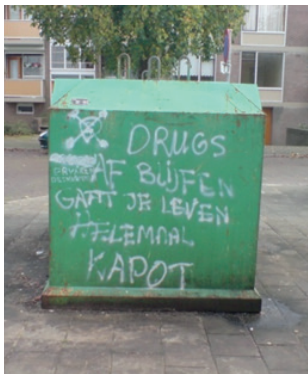 DRUGS
AF BLIJFEN
GAAT JE LEVEN
HELEMAAL
KAPOT